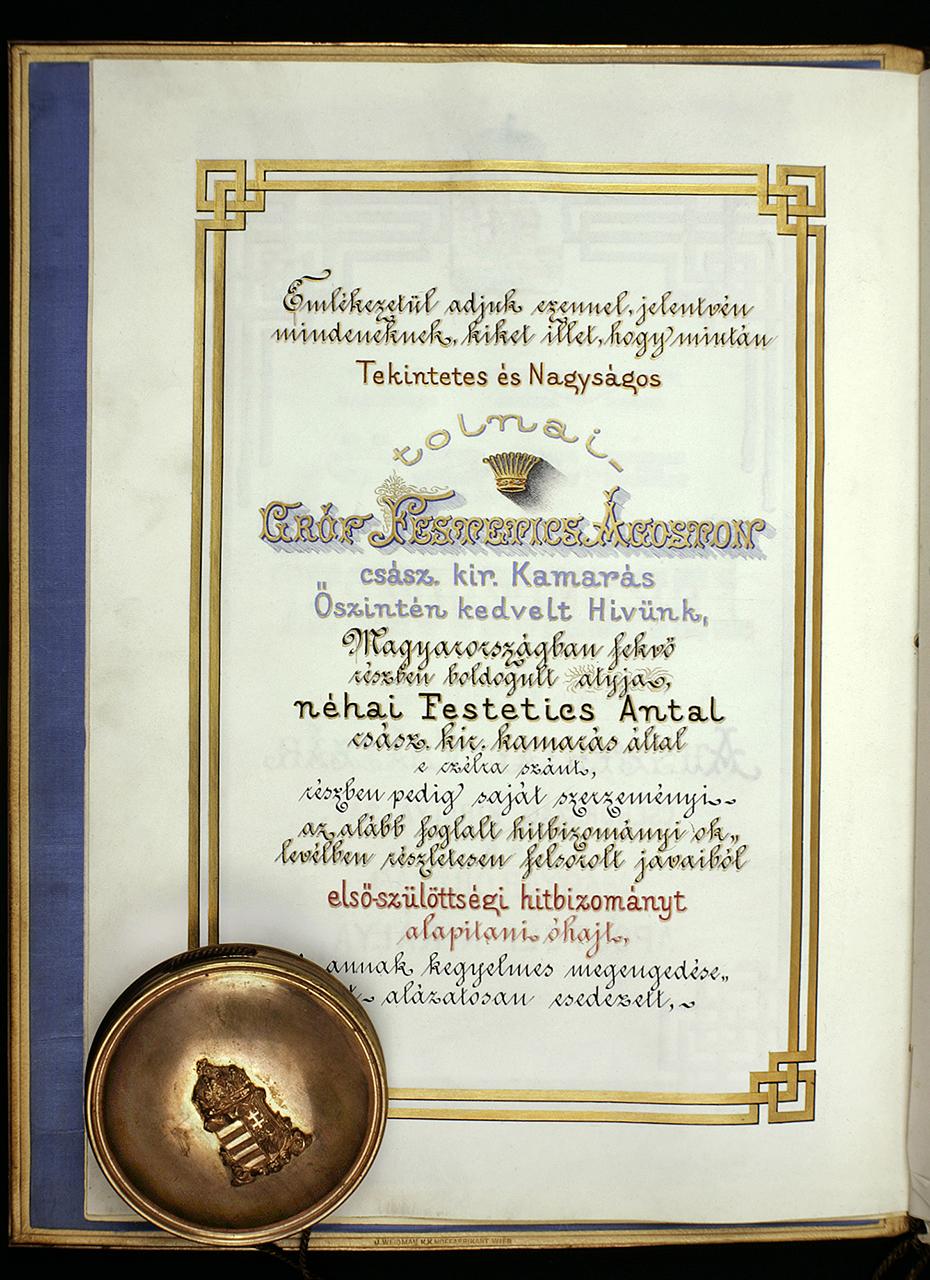 Emlékezetül adjuk ezennel, jelentvén
mindeneknek, kiket illet, hogy miután
Tekintetes és Nagyságos
tolnai-
Gróf Festetics Ágoston
csász. kir. Kamarás
Őszintén kedvelt Hivünk,
Magyarországban fekvő
részben boldogult atyja,
néhai Festetics Antal
csász. kir. kamarás által
e czélra szánt,
részben pedig saját szerzeményi-
az alább foglalt hitbizományi ok„
levélben részletesen felsorolt javaiból
első-szülöttségi hitbizományt
alapitani óhajt,
annak kegyelmes megengedése„
alázatosan esedezett,
J. WEIDMAN K.K. HOFFABRIKANT WIEN